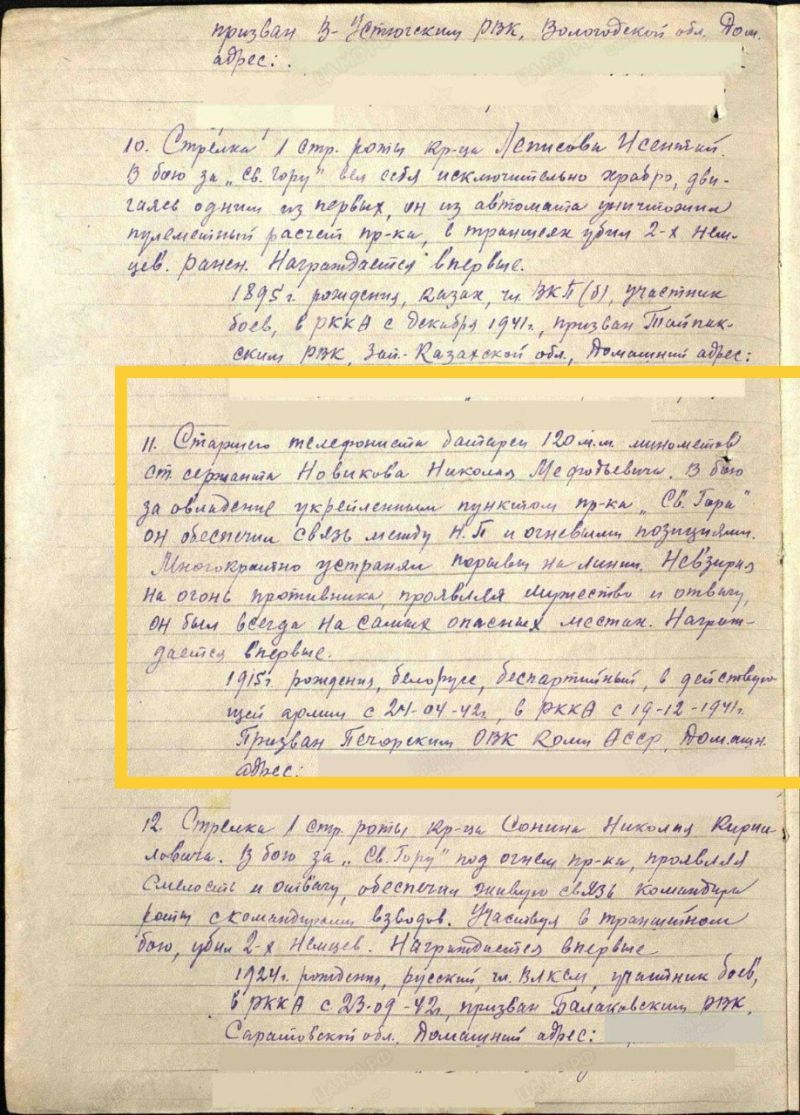 призван В-Устюгским РВК, Вологодской обл. Дом.
адрес:
10. Стрелка 1 стр. роты кр-ца Леписова Исентай.
В бою за „Св. Гору" вел себя исключительно храбро, дви-
гаясь одним из первых, он из автомата уничтожил
пулеметный расчет пр-ка, в траншеях убил 2-х нем-
цев. Ранен. Награждается впервые.
1895 г. рождения, казах, чл. ВКП(б), участник
боев, в РККА с декабря 1941 г., призван Тайпак-
ским РВК, Зап.-Казахской обл., Домашний адрес:
11. Старшего телефониста батареи 120 м.м. минометов
ст. сержанта Новикова Николая Мефодьевича. В бою
за овладение укрепленным пунктом пр-ка „Св. Гора"
он обеспечил связь между Н.П и огневыми позициями.
Многократно устранял порывы на линии. Невзирая
на огонь противника, проявляя мужество и отвагу,
он был всегда на самых опасных местах. Награж-
дается впервые.
1915 г. рождения, белорусс, беспартийный, в действую-
щей армии с 24-04-42 г., в РККА с 19-12-1941 г.
Призван Печорским ОВК Коми АССР, Домашн.
адрес:
12. Стрелка 1 стр. роты кр-ца Сонина Николая Кирил-
ловича. В бою за „Св. Гору" под огнем пр-ка, проявляя
смелость и отвагу, обеспечил живую связь командира
роты с командирами взводов. Участвуя в траншейном
бою, убил 2-х немцев. Награждается впервые
1924 г. рождения, русский, чл. ВЛКСМ, участник боев,
в РККА с 23-09-42 г., призван Балаковским РВК,
Саратовской обл., Домашний адрес: